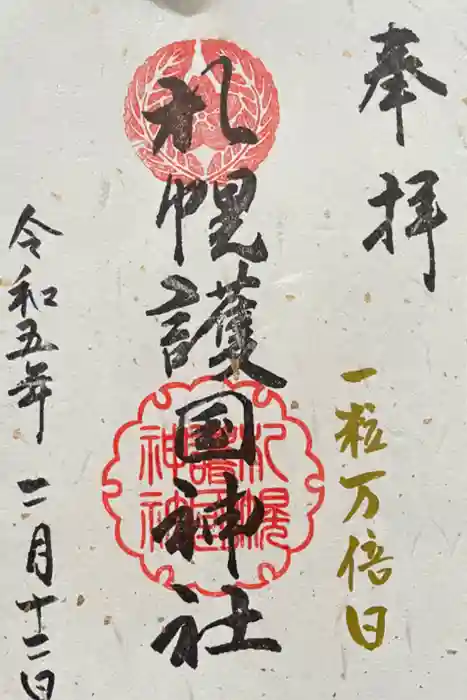 奉拝
一粒万倍日
札幌護国神社
札幌
護国
神社
令和五年 二月十二日